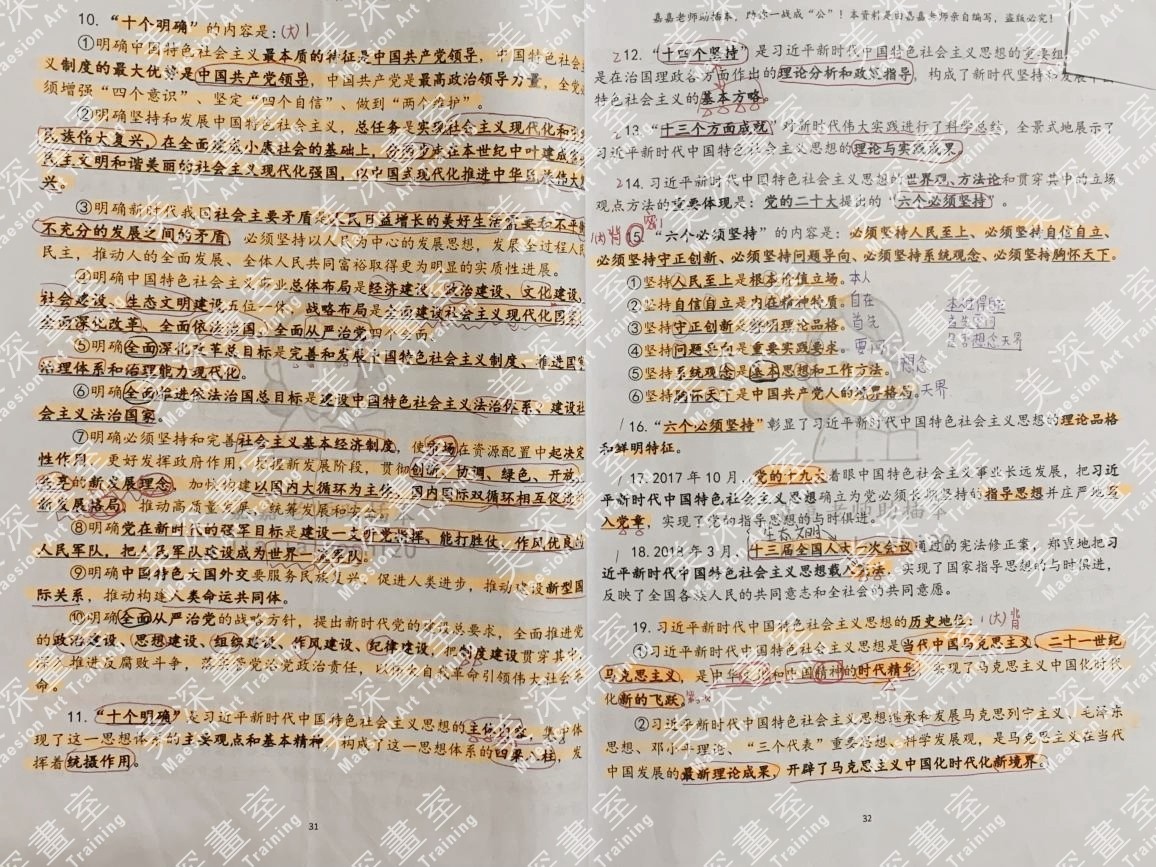 10. “十个明确”的内容是：(大)
①明确中国特色社会主义最本质的特征是中国共产党领导，中国特色社会
义制度的最大优势是中国共产党领导，中国共产党是最高政治领导力量，全党
须增强“四个意识”、坚定“四个自信”、做到“两个维护”。
②明确坚持和发展中国特色社会主义，总任务是实现社会主义现代化和
民族伟大复兴，在全面建成小康社会的基础上，分两步走在本世纪中叶建成富
民主文明和谐美丽的社会主义现代化强国，以中国式现代化推进中华民族伟大
兴。
③明确新时代我国社会主要矛盾是人民日益增长的美好生活需要和不平衡
不充分的发展之间的矛盾，必须坚持以人民为中心的发展思想，发展全过程人民
民主，推动人的全面发展、全体人民共同富裕取得更为明显的实质性进展。
④明确中国特色社会主义事业总体布局是经济建设、政治建设、文化建设、
社会建设、生态文明建设五位一体，战略布局是全面建设社会主义现代化国家、
全面深化改革、全面依法治国、全面从严治党四个全面。
⑤明确全面深化改革总目标是完善和发展中国特色社会主义制度、推进国家
治理体系和治理能力现代化。
⑥明确全面推进依法治国总目标是建设中国特色社会主义法治体系、建设社
会主义法治国家。
⑦明确必须坚持和完善社会主义基本经济制度，使市场在资源配置中起决定
性作用，更好发挥政府作用，把握新发展阶段，贯彻创新、协调、绿色、开放、
共享的新发展理念，加快构建以国内大循环为主体、国内国际双循环相互促进的
新发展格局，推动高质量发展，统筹发展和安全。
⑧明确党在新时代的强军目标是建设一支听党指挥、能打胜仗、作风优良的
人民军队，把人民军队建设成为世界一流军队。
⑨明确中国特色大国外交要服务民族复兴、促进人类进步，推动建设新型国
际关系，推动构建人类命运共同体。
⑩明确全面从严治党的战略方针，提出新时代党的建设总要求，全面推进党
的政治建设、思想建设、组织建设、作风建设、纪律建设，把制度建设贯穿其中，
深入推进反腐败斗争，落实管党治党政治责任，以伟大自我革命引领伟大社会革
命。
11. “十个明确”是习近平新时代中国特色社会主义思想的主体内容，集中体
现了这一思想体系的主要观点和基本精神，构成了这一思想体系的四梁八柱，发
挥着统摄作用。
31
嘉嘉老师助描本，助你一战成“公”！本资料是由嘉嘉老师亲自编写，盗版必究！
12. “十四个坚持”是习近平新时代中国特色社会主义思想的重要组
是在治国理政各方面作出的理论分析和政策指导，构成了新时代坚持和发展中
特色社会主义的基本方略。
13. “十三个方面成就”对新时代伟大实践进行了科学总结，全景式地展示了
习近平新时代中国特色社会主义思想的理论与实践成果
14. 习近平新时代中国特色社会主义思想的世界观、方法论和贯穿其中的立场
观点方法的重要体现是：党的二十大提出的“六个必须坚持”。
15. “六个必须坚持”的内容是：必须坚持人民至上、必须坚持自信自立、
必须坚持守正创新、必须坚持问题导向、必须坚持系统观念、必须坚持胸怀天下。
①坚持人民至上是根本价值立场。本人
②坚持自信自立是内在精神特质。自在
③坚持守正创新是鲜明理论品格。首先
④坚持问题导向是重要实践要求。要问
⑤坚持系统观念是基本思想和工作方法。想念
⑥坚持胸怀天下是中国共产党人的境界格局。天界
16. “六个必须坚持”彰显了习近平新时代中国特色社会主义思想的理论品格
和鲜明特征。
17. 2017 年 10 月，党的十九大着眼中国特色社会主义事业长远发展，把习近
平新时代中国特色社会主义思想确立为党必须长期坚持的指导思想并庄严地写
入党章，实现了党的指导思想的与时俱进。
生态文明
18. 2018 年 3 月，十三届全国人大一次会议通过的宪法修正案，郑重地把习
近平新时代中国特色社会主义思想载入宪法，实现了国家指导思想的与时俱进，
反映了全国各族人民的共同意志和全社会的共同意愿。
19. 习近平新时代中国特色社会主义思想的历史地位：(大)背
①习近平新时代中国特色社会主义思想是当代中国马克思主义、二十一世纪
马克思主义，是中华文化和中国精神的时代精华，实现了马克思主义中国化时代
化新的飞跃。
②习近平新时代中国特色社会主义思想继承和发展马克思列宁主义、毛泽东
思想、邓小平理论、“三个代表”重要思想、科学发展观，是马克思主义在当代
中国发展的最新理论成果，开辟了马克思主义中国化时代化新境界。
32
美深畫室
Maesion Art Training